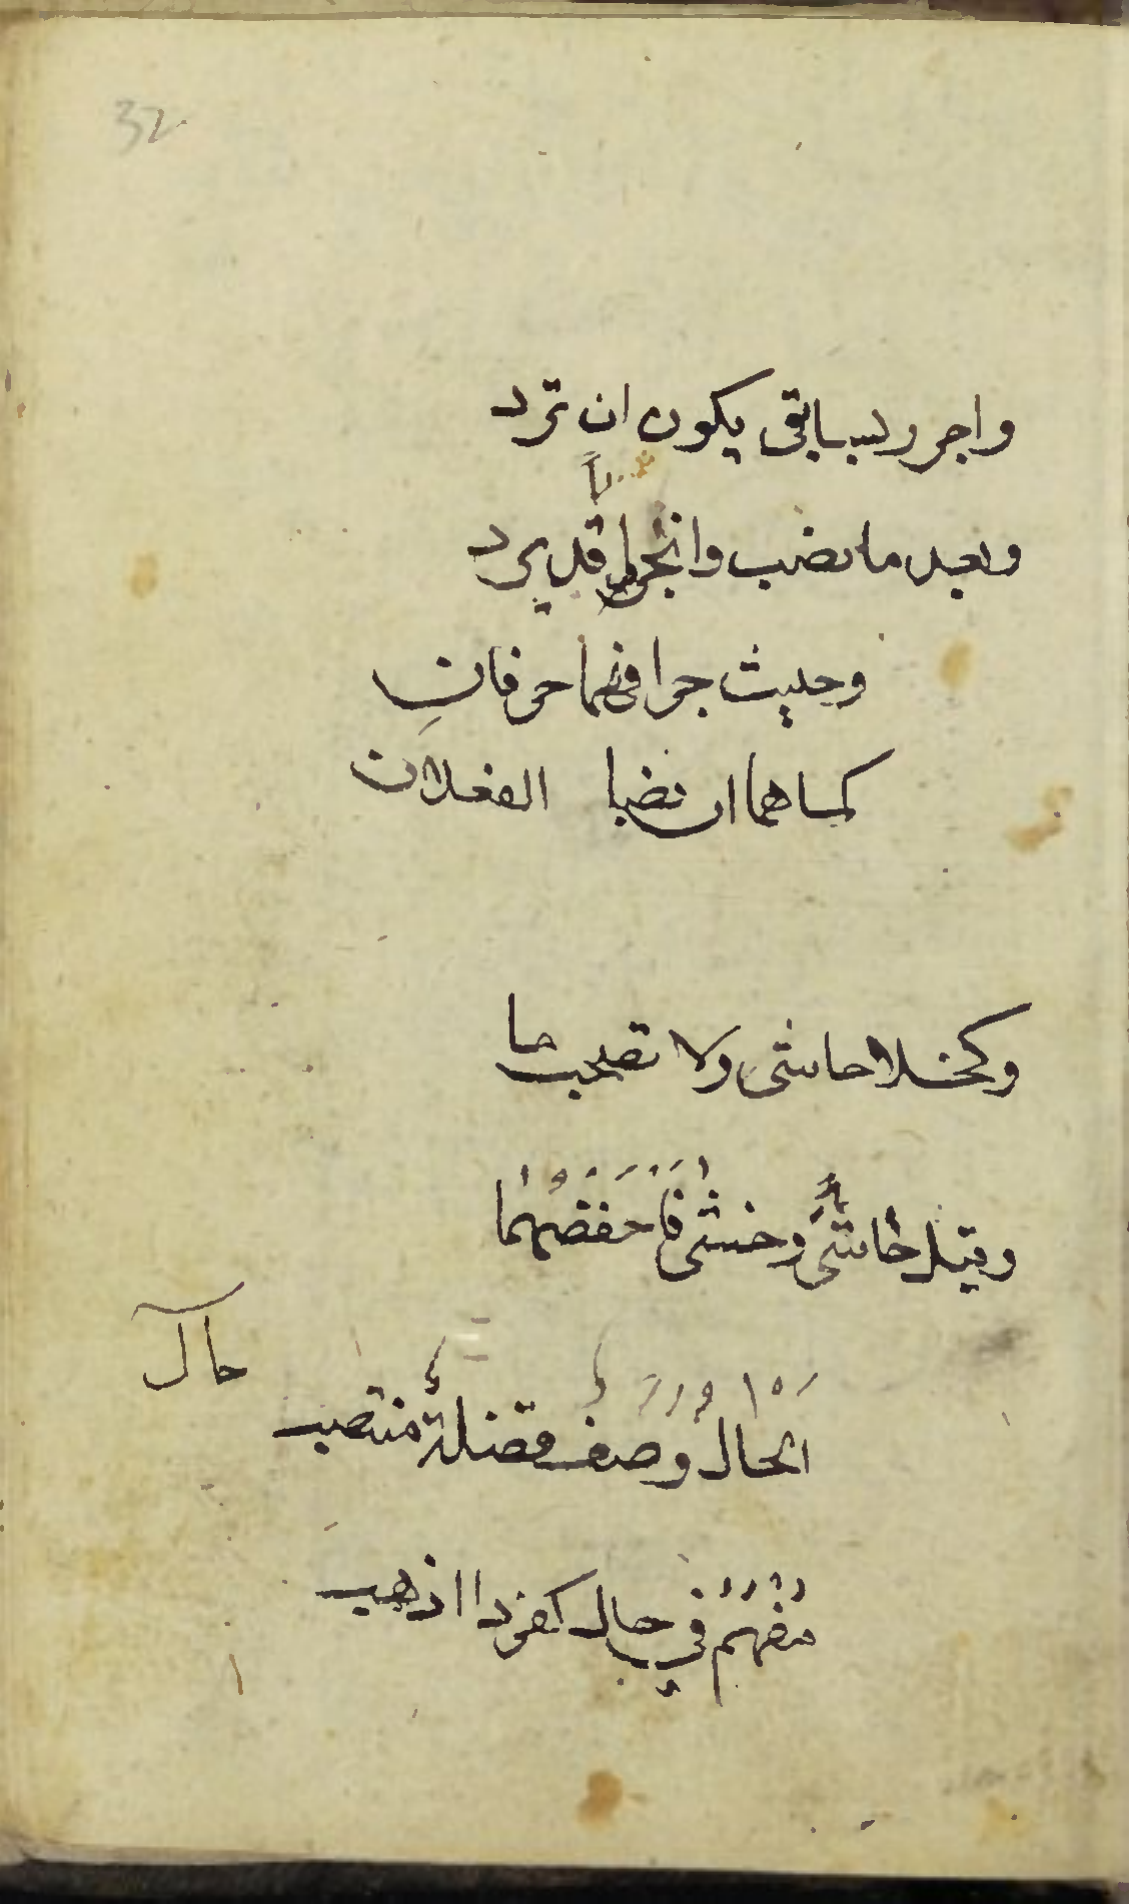 32
واجرر بسابقى يكون ان ترد
وبعد ما نصب وانجرار قد يرد
وحيث جرا فهما حرفان
كما هما ان نصبا الفعلان
وكخلا حاشى ولا تصحب ما
وقيل حاش وحشى فاحفظهما
حال
الحال وصف فضلة منتصب
مفهم في حال كفردا اذهب